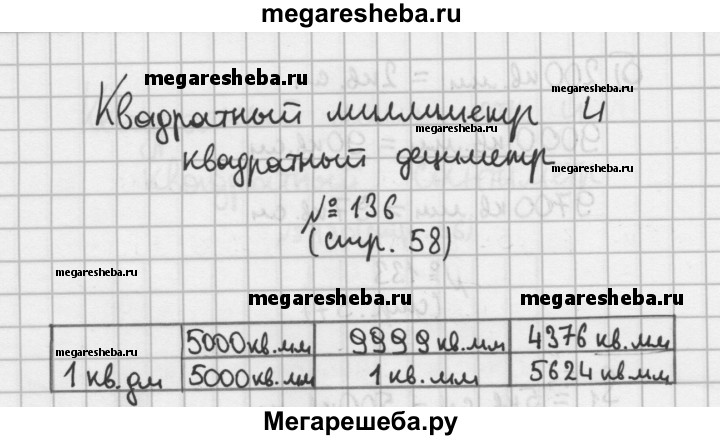 megaresheba.ru
megaresheba.ru
megaresheba.ru
Квадратный миллиметр и
megaresheba.ru
квадратный дециметр
№ 136
(стр. 58)
megaresheba.ru
megaresheba.ru megaresheba.ru megaresheba.ru
5000 кв.мм 9999 кв.мм 4376 кв.мм
1 кв.дм 5000 кв.мм 1 кв.мм 5624 кв.мм
Мегарешеба.ру